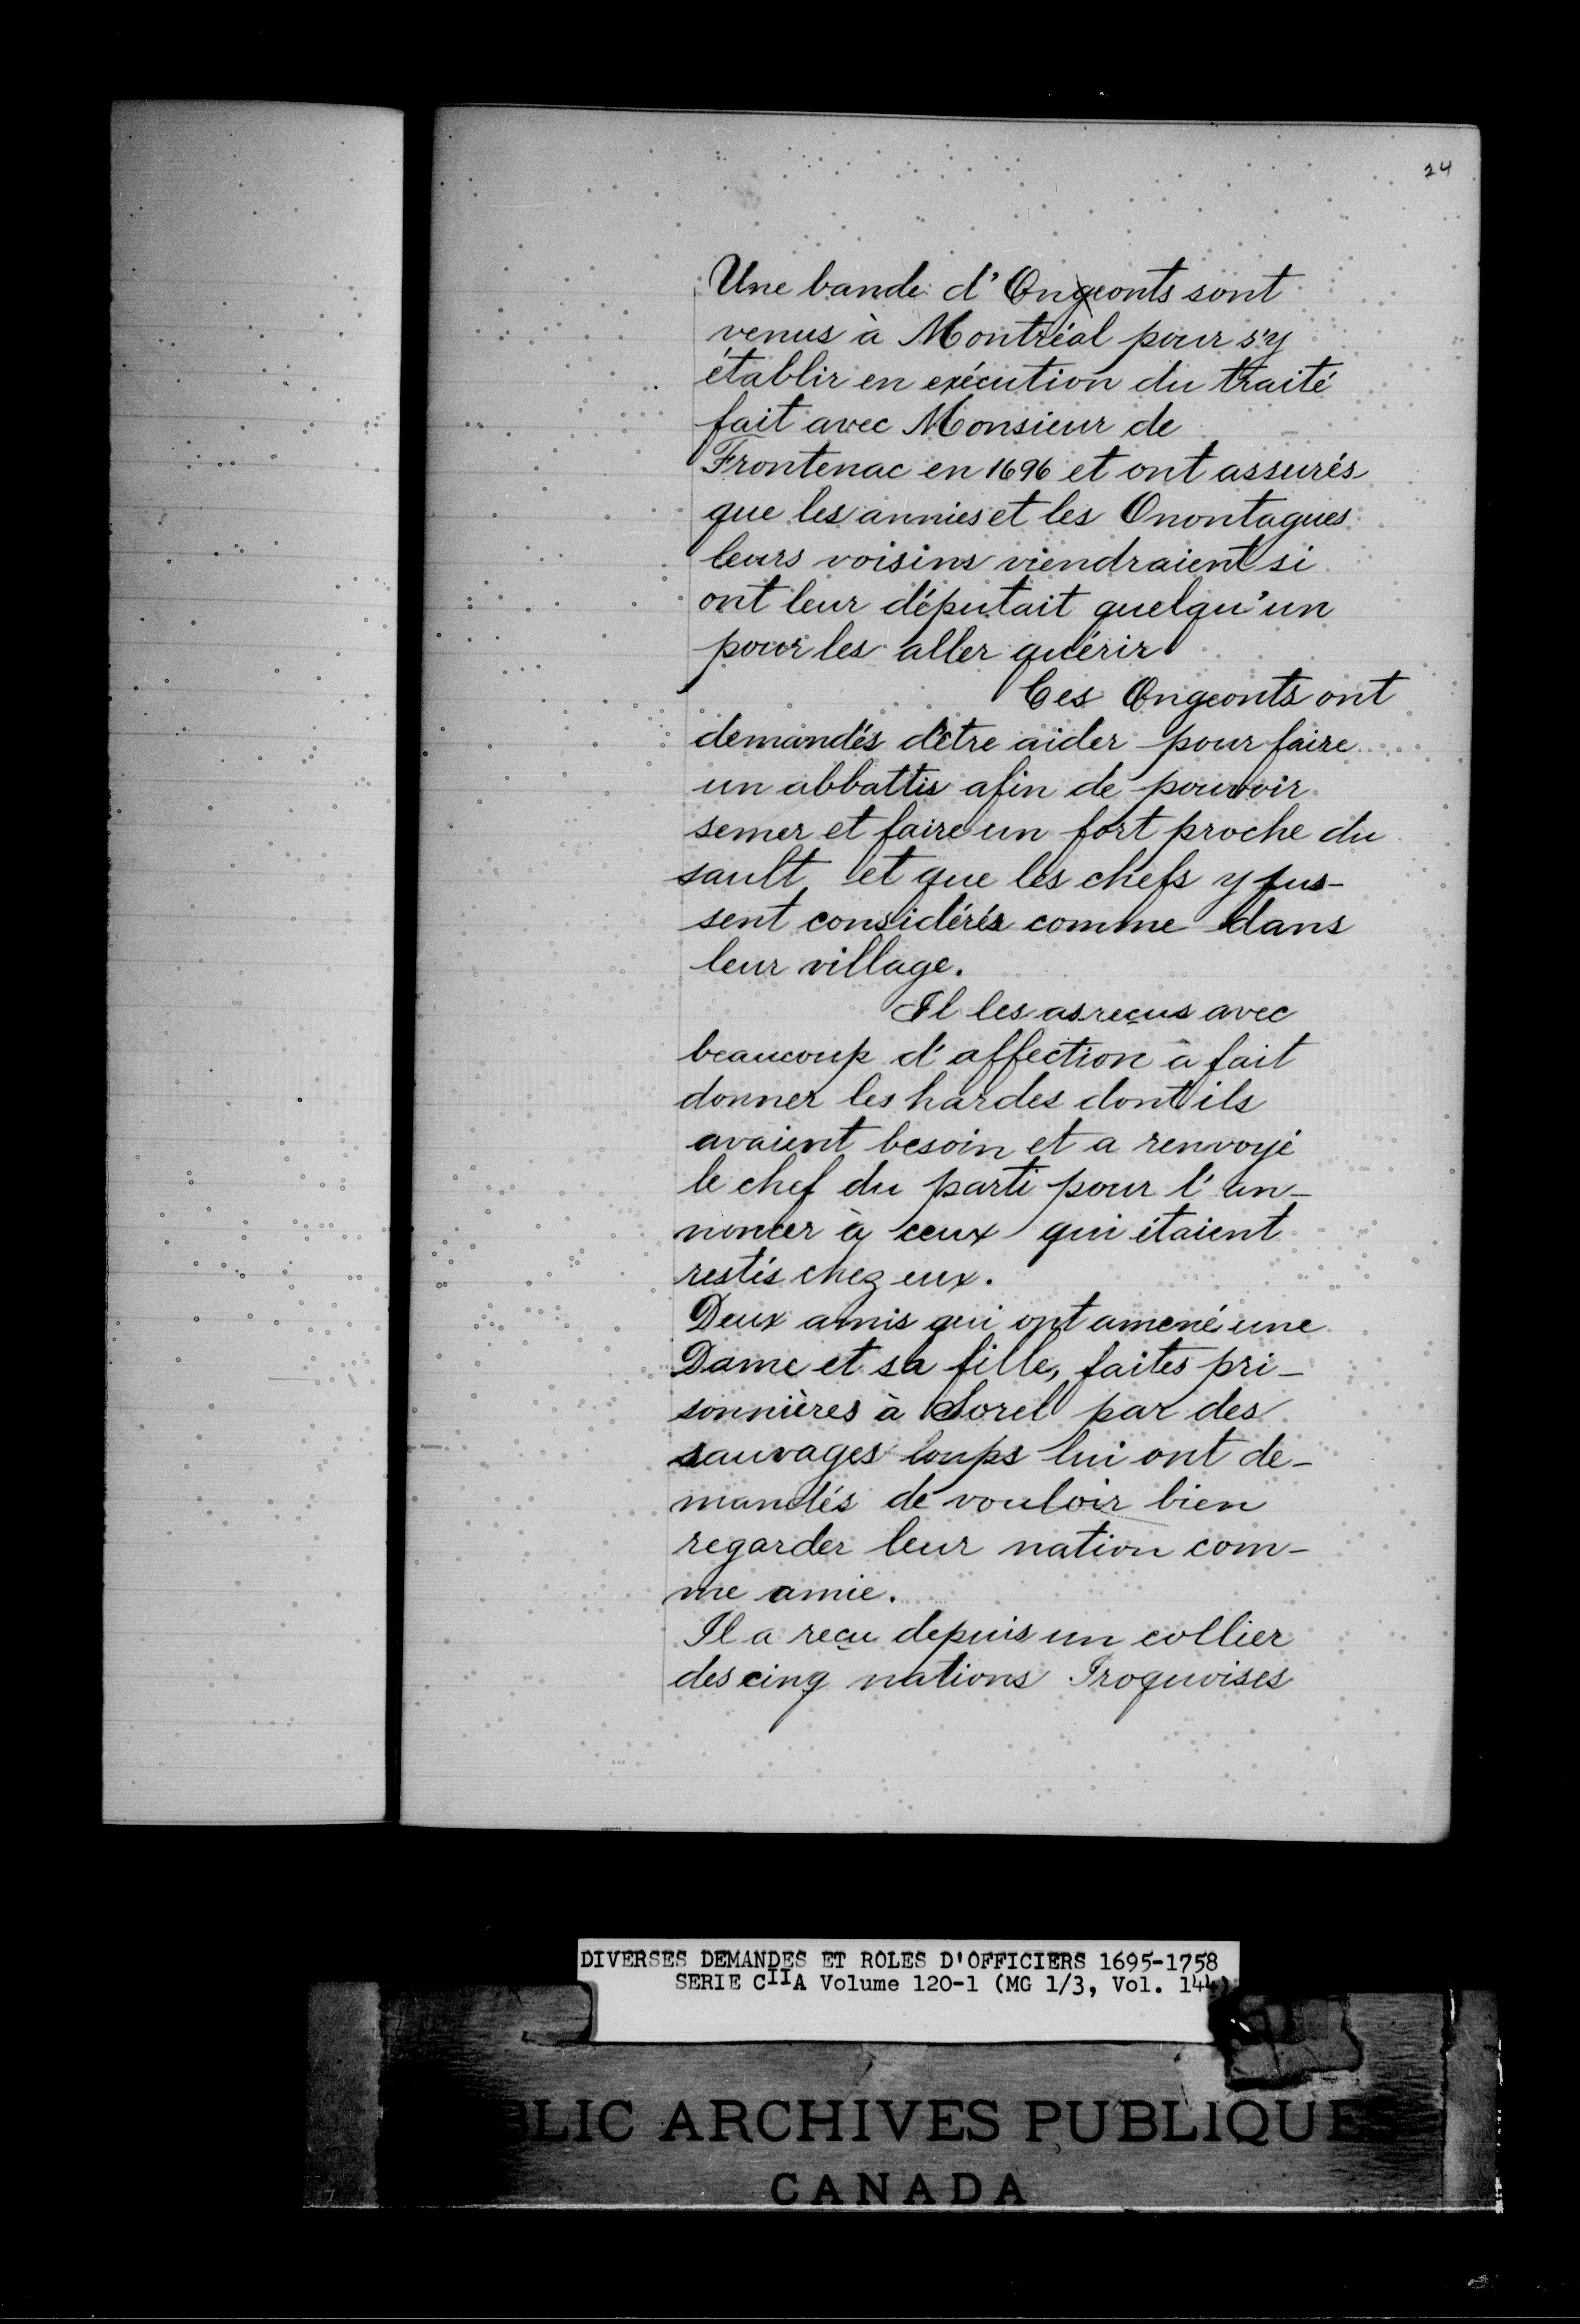 24
Une bande d'Ongeonts sont
venus à Montréal pour s'y
établir en exécution du traité
fait avec Monsieur de
Frontenac en 1696 et ont assurés
que les annies et les Onontagues
leurs voisins viendraient si
ont leur députait quelqu'un
pour les aller quérir
Ces Ongeonts ont
demandés d'être aider pour faire
un abbattis afin de pouvoir
semer et faire un fort proche du
sault et que les chefs y fus-
sent considérés comme dans
leur village.
Il les as reçus avec
beaucoup d'affection a fait
donner les hardes dont ils
avaient besoin et a renvoyé
le chef du parti pour l'an-
noncer à ceux qui étaient
restés chez eux.
Deux amis qui ont amené une
Dame et sa fille, faites pri-
sonnières à Sorel par des
sauvages loups lui ont de-
mandés de vouloir bien
regarder leur nation com-
me amie.
Il a reçu depuis un collier
des cinq nations Iroquoises
DIVERSES DEMANDES ET ROLES D'OFFICIERS 1695-1758
SERIE CIIA Volume 120-1 (MG 1/3, Vol. 144)
BLIC ARCHIVES PUBLIQUES
CANADA